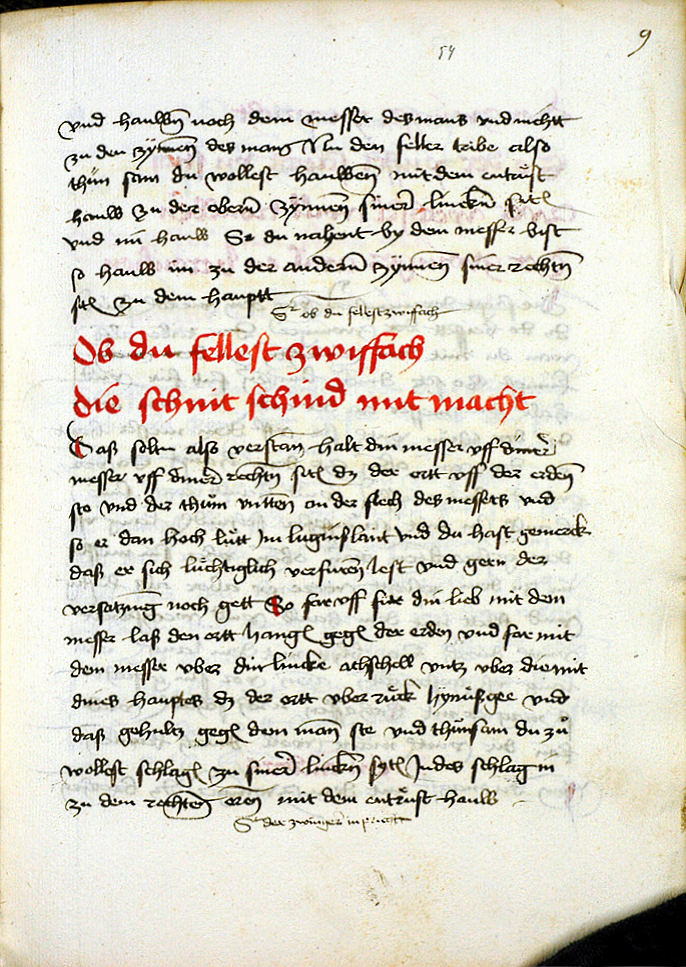 9
54
vnd hauwen noch dem messer des mans vnd nichtt
zu den zymen des mans Nu den feller tribe also
thün sam du wollest hauwen mit dem entrüst
hauw zu der obern zynnen siner lincken sitē
vnd im hauw So du nahent by dem messer bist
so hauw im zu der andern zynnen siner rechten
sitē zu dem hauptt
ob du fellest zwifach
Ob du fellest zwiffach
die schnit schind mit macht
Daß soltu also verstan halt din messer vff diner
messer vff diner rechten sitē dz der ortt vff der erden
sto vnd der thum vntten an der flech des messers vnd
so er dan hoch lütt Im luginslant vnd du hast gemerck
daß er sich lüchtiglich verfuren lest vnd gern der
versatzung noch gett So far vff für din lieb mit dem
messer laß den ortt hangē gegē der erden vnd far mit
dem messer vber din lincke achschell vntz vber die mit
dines hauptes dz der ortt vber rück hynußgee vnd
daß gehultz gegē dem man ste vnd thün sam du zů
wollest schlagē zu siner lincken sytē Indes schlag in
zu dem rechten oren mit dem entrüst hauw
der zwinger in pricht